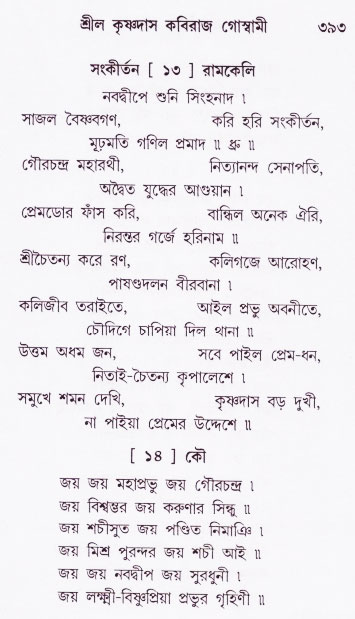 শ্রীল কৃষ্ণদাস কবিরাজ গোস্বামী ৩৯৩
সংকীর্তন [ ১৩ ] রামকেলি
নবদ্বীপে শুনি সিংহনাদ ৷
সাজল বৈষ্ণবগণ, করি হরি সংকীর্তন,
মূঢ়মতি গণিল প্রমাদ ॥ ধ্রু ॥
গৌরচন্দ্র মহারথী, নিত্যানন্দ সেনাপতি,
অদ্বৈত যুদ্ধের আগুয়ান ৷
প্রেমডোর ফাঁস করি, বান্ধিল অনেক ঐরি,
নিরন্তর গর্জে হরিনাম ॥
শ্রীচৈতন্য করে রণ, কলিগজে আরোহণ,
পাষণ্ডদলন বীরবানা ৷
কলিজীব তরাইতে, আইল প্রভু অবনীতে,
চৌদিগে চাপিয়া দিল থানা ॥
উত্তম অধম জন, সবে পাইল প্রেম-ধন,
নিতাই-চৈতন্য কৃপালেশে ৷
সমুখে শমন দেখি, কৃষ্ণদাস বড় দুখী,
না পাইয়া প্রেমের উদ্দেশে ॥
[ ১৪ ] কৌ
জয় জয় মহাপ্রভু জয় গৌরচন্দ্র ৷
জয় বিশ্বম্ভর জয় করুণার সিন্ধু ॥
জয় শচীসুত জয় পণ্ডিত নিমাঞি ৷
জয় মিশ্র পুরন্দর জয় শচী আই ॥
জয় জয় নবদ্বীপ জয় সুরধুনী ৷
জয় লক্ষ্মী-বিষ্ণুপ্রিয়া প্রভুর গৃহিণী ॥